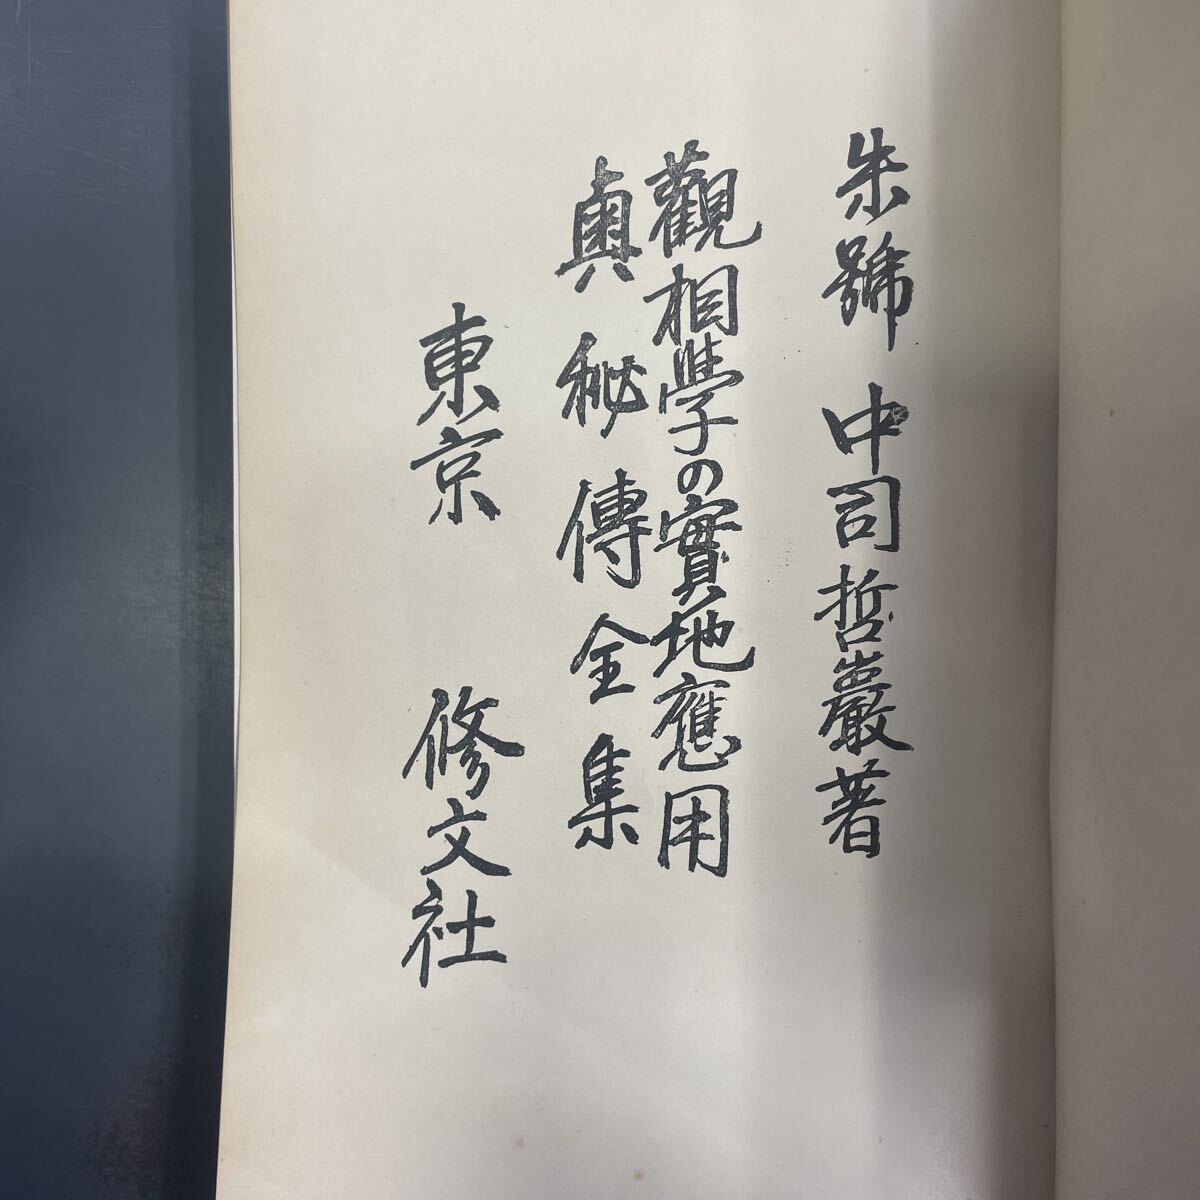 朱號 中司哲巖著
觀相學の實地應用
奥秘傳全集
東京 修文社